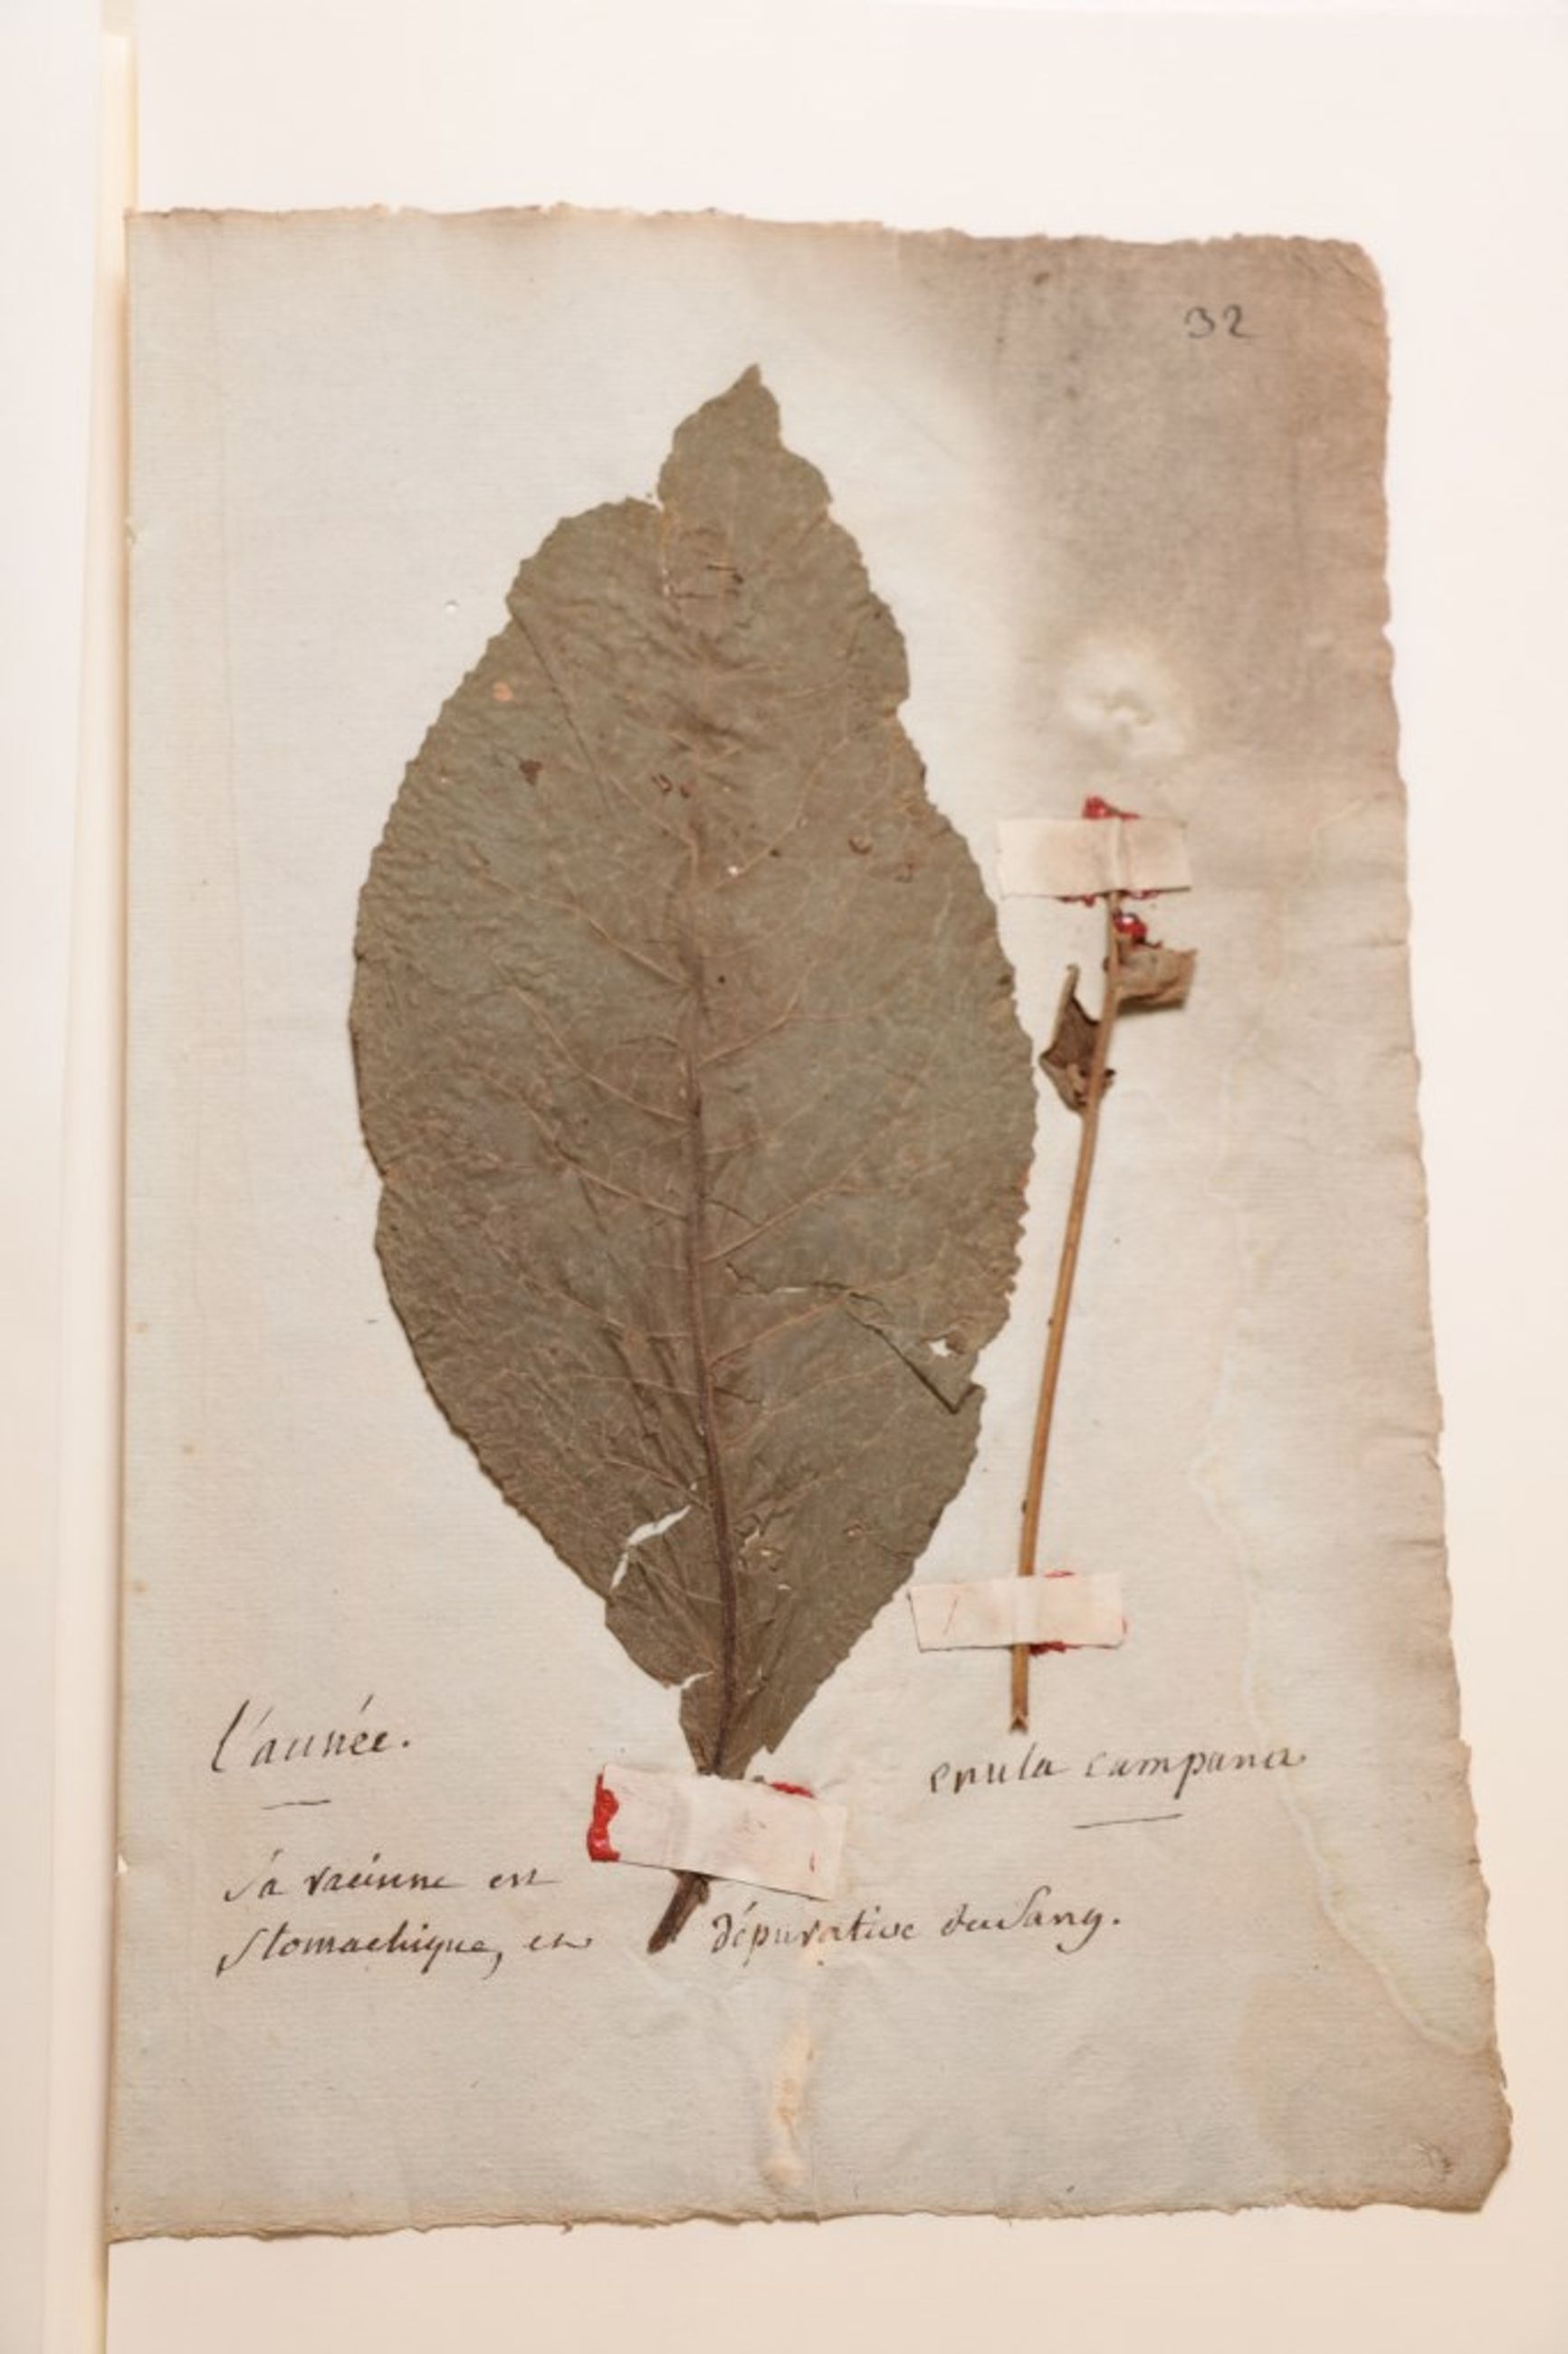 32
l'aunée.
enula campana
sa racinne est
stomachique, et dépurative du sang.